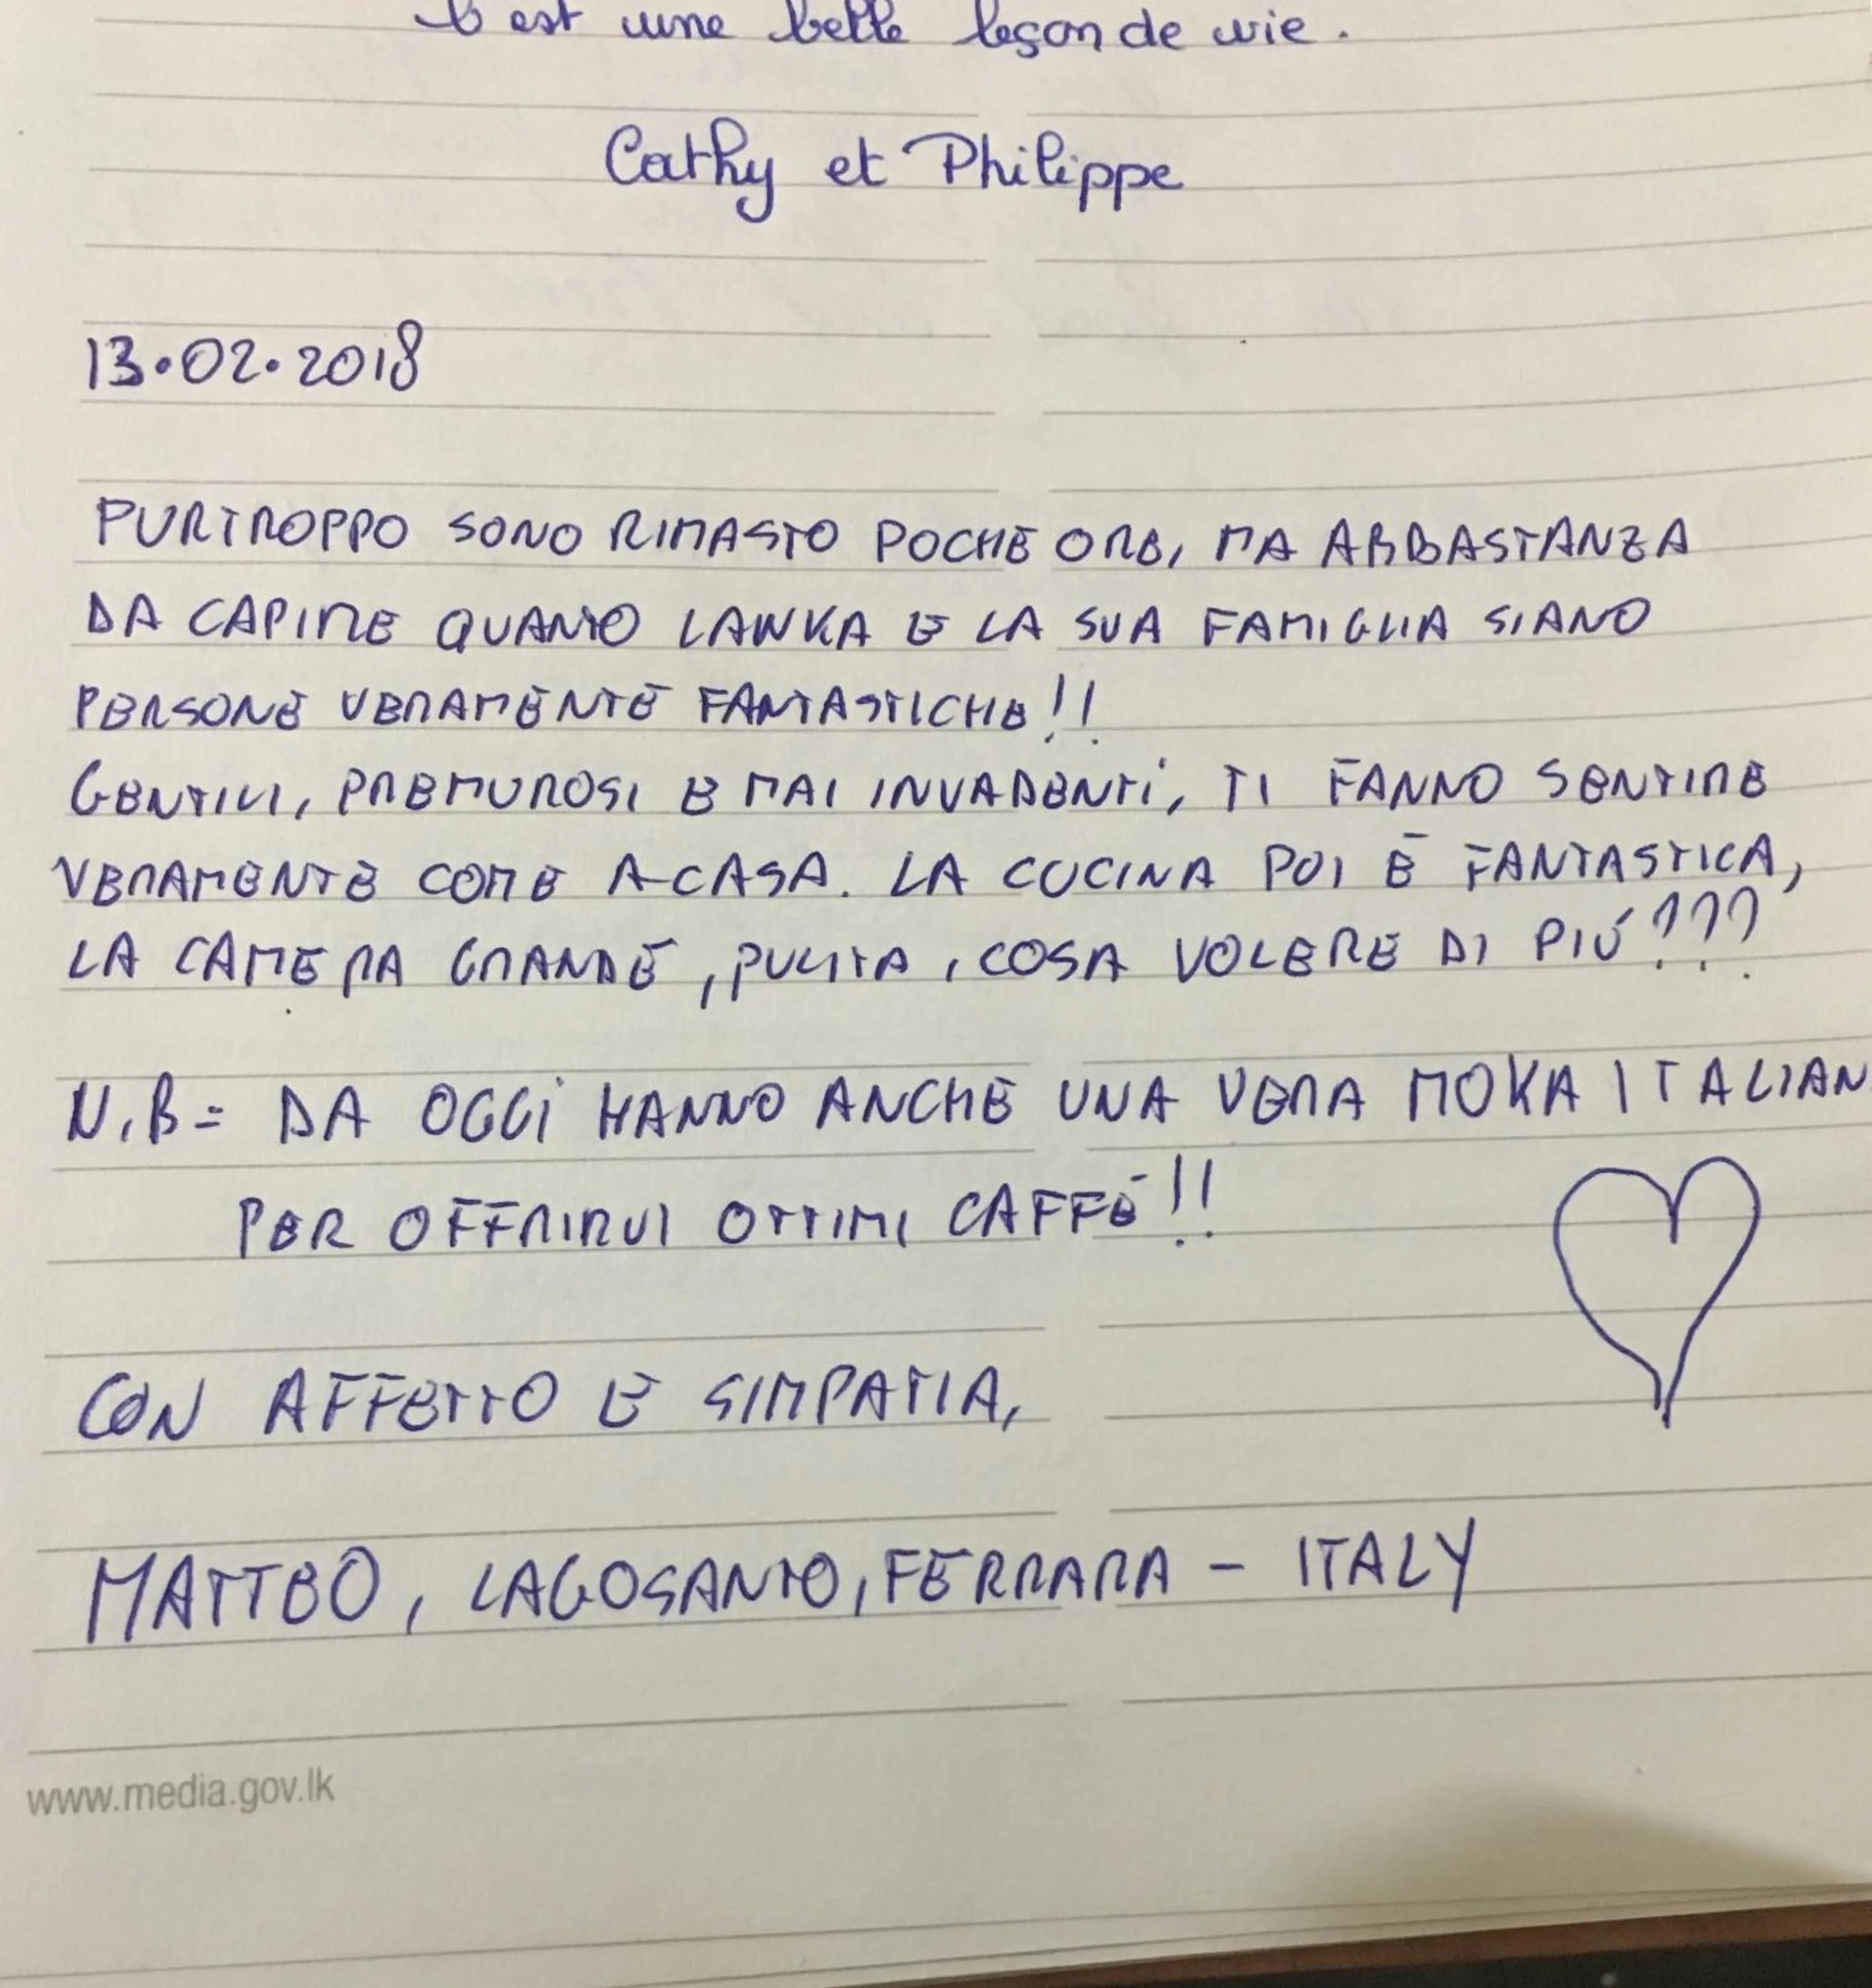 C'est une belle leçon de vie.
Cathy et Philippe
13.02.2018
PURTROPPO SONO RIMASTO POCHE ORE, MA ABBASTANZA
DA CAPIRE QUANTO LANKA E LA SUA FAMIGLIA SIANO
PERSONE VERAMENTE FANTASTICHE!!
GENTILI, PREMUROSI E MAI INVADENTI, TI FANNO SENTIRE
VERAMENTE COME A CASA. LA CUCINA POI È FANTASTICA,
LA CAMERA GRANDE, PULITA, COSA VOLERE DI PIÚ???
N.B= DA OGGI HANNO ANCHE UNA VERA MOKA ITALIAN
PER OFFRIRVI OTTIMI CAFFÉ!!
CON AFFETTO E SIMPATIA,
MATTEO, LAGOSANTO, FERRARA - ITALY
www.media.gov.lk